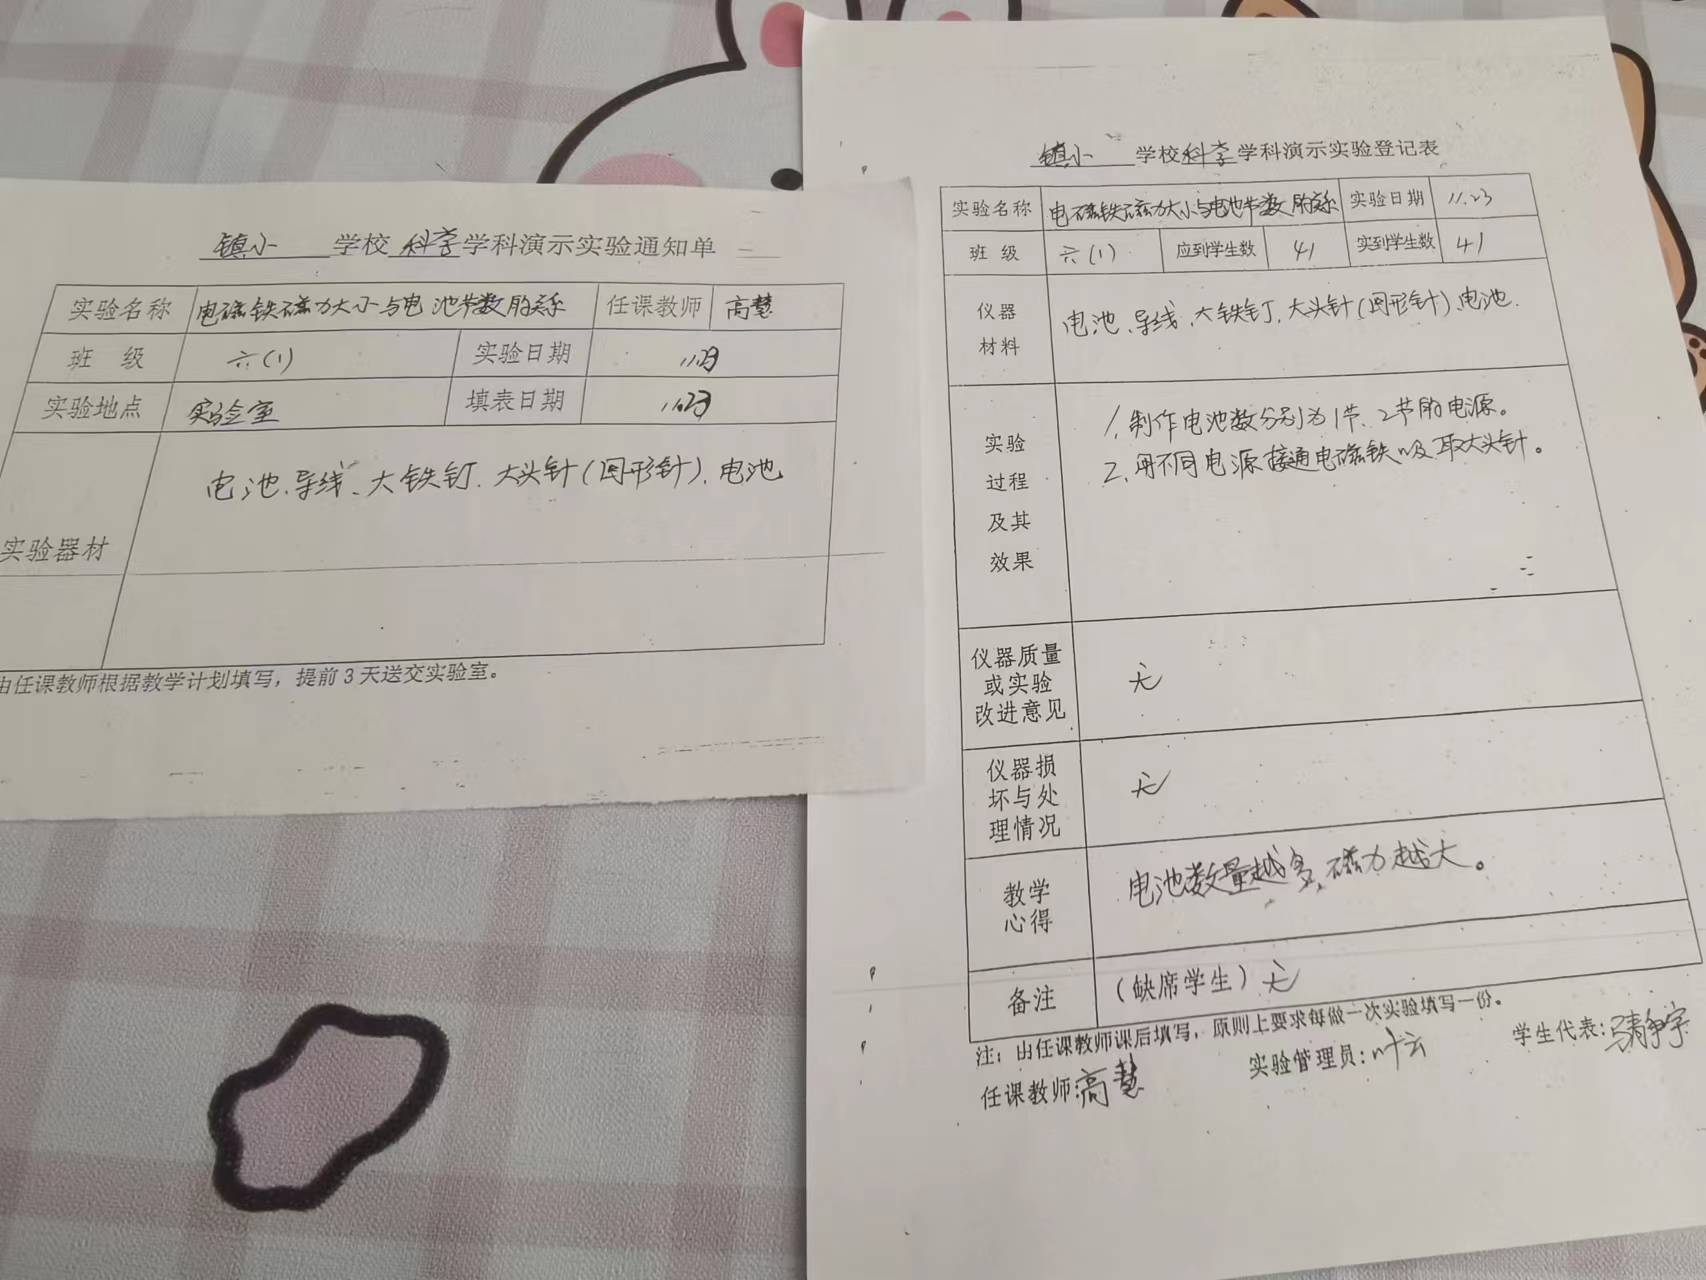 镇小 学校 科学 学科演示实验通知单
实验名称 电磁铁磁力大小与电池节数的关系 任课教师 高慧
班 级 六(1) 实验日期 11.23
实验地点 实验室 填表日期 11.23
实验器材 电池、导线、大铁钉、大头针(回形针)、电池
由任课教师根据教学计划填写，提前3天送交实验室。
镇小 学校科学学科演示实验登记表
实验名称 电磁铁磁力大小与电池节数的关系 实验日期 11.23
班 级 六(1) 应到学生数 41 实到学生数 41
仪器材料 电池、导线、大铁钉、大头针(回形针)、电池.
实验过程及其效果 1、制作电池数分别为1节、2节的电源。
2、用不同电源接通电磁铁吸取大头针。
仪器质量或实验改进意见 无
仪器损坏与处理情况 无
教学心得 电池数量越多，磁力越大。
备注 (缺席学生) 无
注：由任课教师课后填写，原则上要求每做一次实验填写一份。
任课教师:高慧 实验管理员:叶云 学生代表: